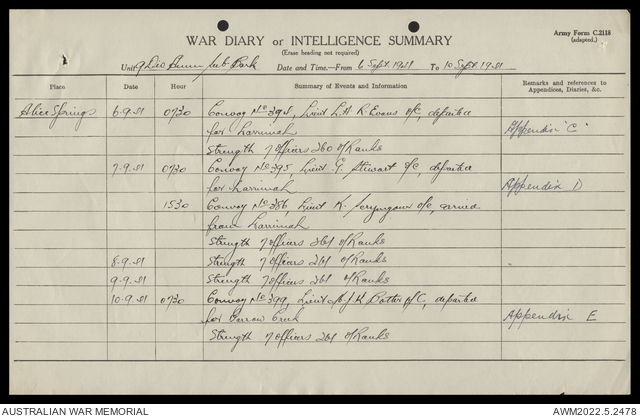 WAR DIARY or INTELLIGENCE SUMMARY
(Erase heading not required)
Army Form C.2118
(adapted.)
Unit 9 Sub Park Date and Time.—From 6 Sept. 1941 To 10 Sept. 1941
Place Date Hour Summary of Events and Information Remarks and references to Appendices, Diaries, &c.
Alice Springs 6.9.41 0730 Convoy No 394, Lieut L.H.R. Evans o/c, departed
for Larrimah Appendix "C"
Strength 7 Officers 260 O/Ranks
7.9.41 0730 Convoy No 395, Lieut G. Stewart o/c departed
for Larrimah Appendix D
1530 Convoy No 386, Lieut K. o/c, arrived
from Larrimah
Strength 7 Officers 261 O/Ranks
8.9.41 Strength 7 Officers 261 O/Ranks
9.9.41 Strength 7 Officers 261 O/Ranks
10.9.41 0730 Convoy No 399, Lieut O/C, departed
for Barrow Creek Appendix E
Strength 7 Officers 261 O/Ranks
AUSTRALIAN WAR MEMORIAL
AWM2022.5.2478